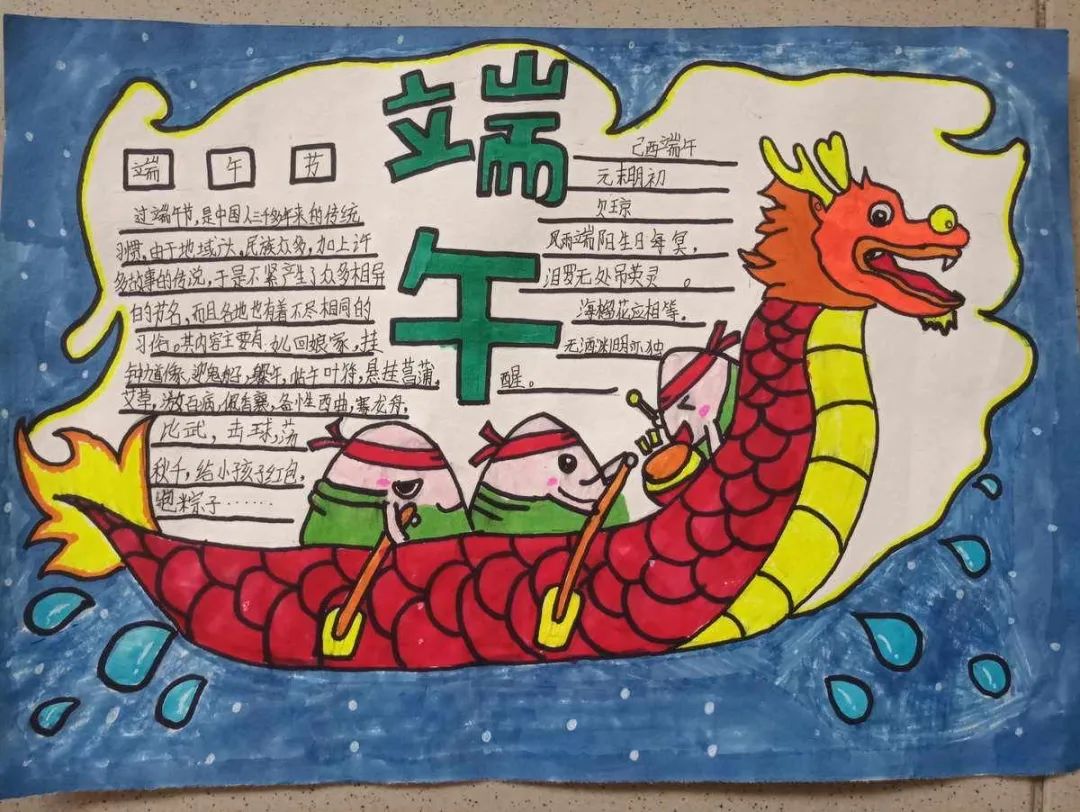 端午
端 午 节
过端午节,是中国人三千多年来的传统
习惯,由于地域达,民族众多,加上许
多故事的传说,于是不紧产生了众多相异
的节名,而且各地也有着不尽相同的
习俗。其内容主要有:女儿回娘家,挂
钟馗像,迎鬼船,躲午,帖午叶符,悬挂菖蒲,
艾草,游百病,佩香囊,备牲西曲,赛龙舟,
比武,击球,荡
秋千,给小孩子红包,
粽子……
己西端午
元末明初
琼
风雨端阳生日每冥,
汨罗无处吊英灵。
海榴花应相等,
无酒渊明亦独
醒。